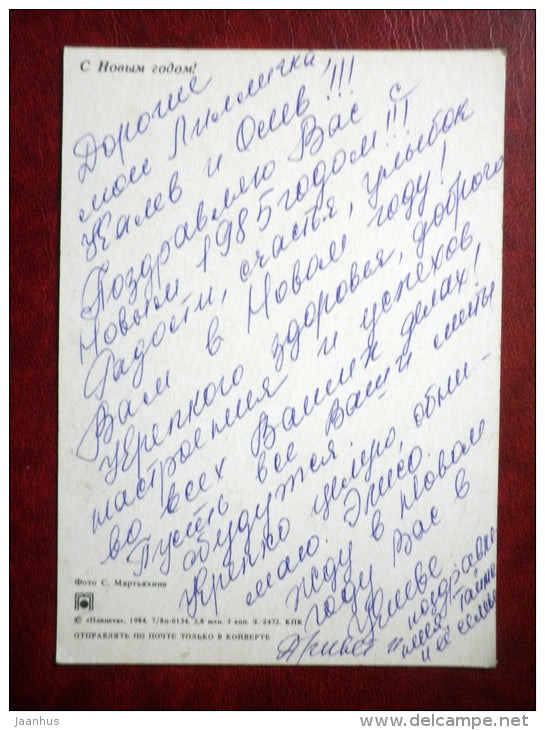 С Новым годом!
Дорогие
мои Лилличка,
Калев и Олев!!!
Поздравляю Вас с
Новым 1985 годом!!!
Радости, счастья, улыбок
Вам в Новом году!
Крепкого здоровья, доброго
настроения и успехов
во всех Ваших делах!
Пусть все Ваши мечты
сбудутся.
Крепко целую, обни-
маю. Энесо.
Жду в Новом
году Вас в
Киеве.
Привет и поздравле-
ния Тайно
и её семье
Фото С. Мартьяхина
© «Планета», 1984, 7/8п-6134. 2,8 млн. 3 коп. З. 2472. КПК
ОТПРАВЛЯТЬ ПО ПОЧТЕ ТОЛЬКО В КОНВЕРТЕ
jaanhus
www.delcampe.net